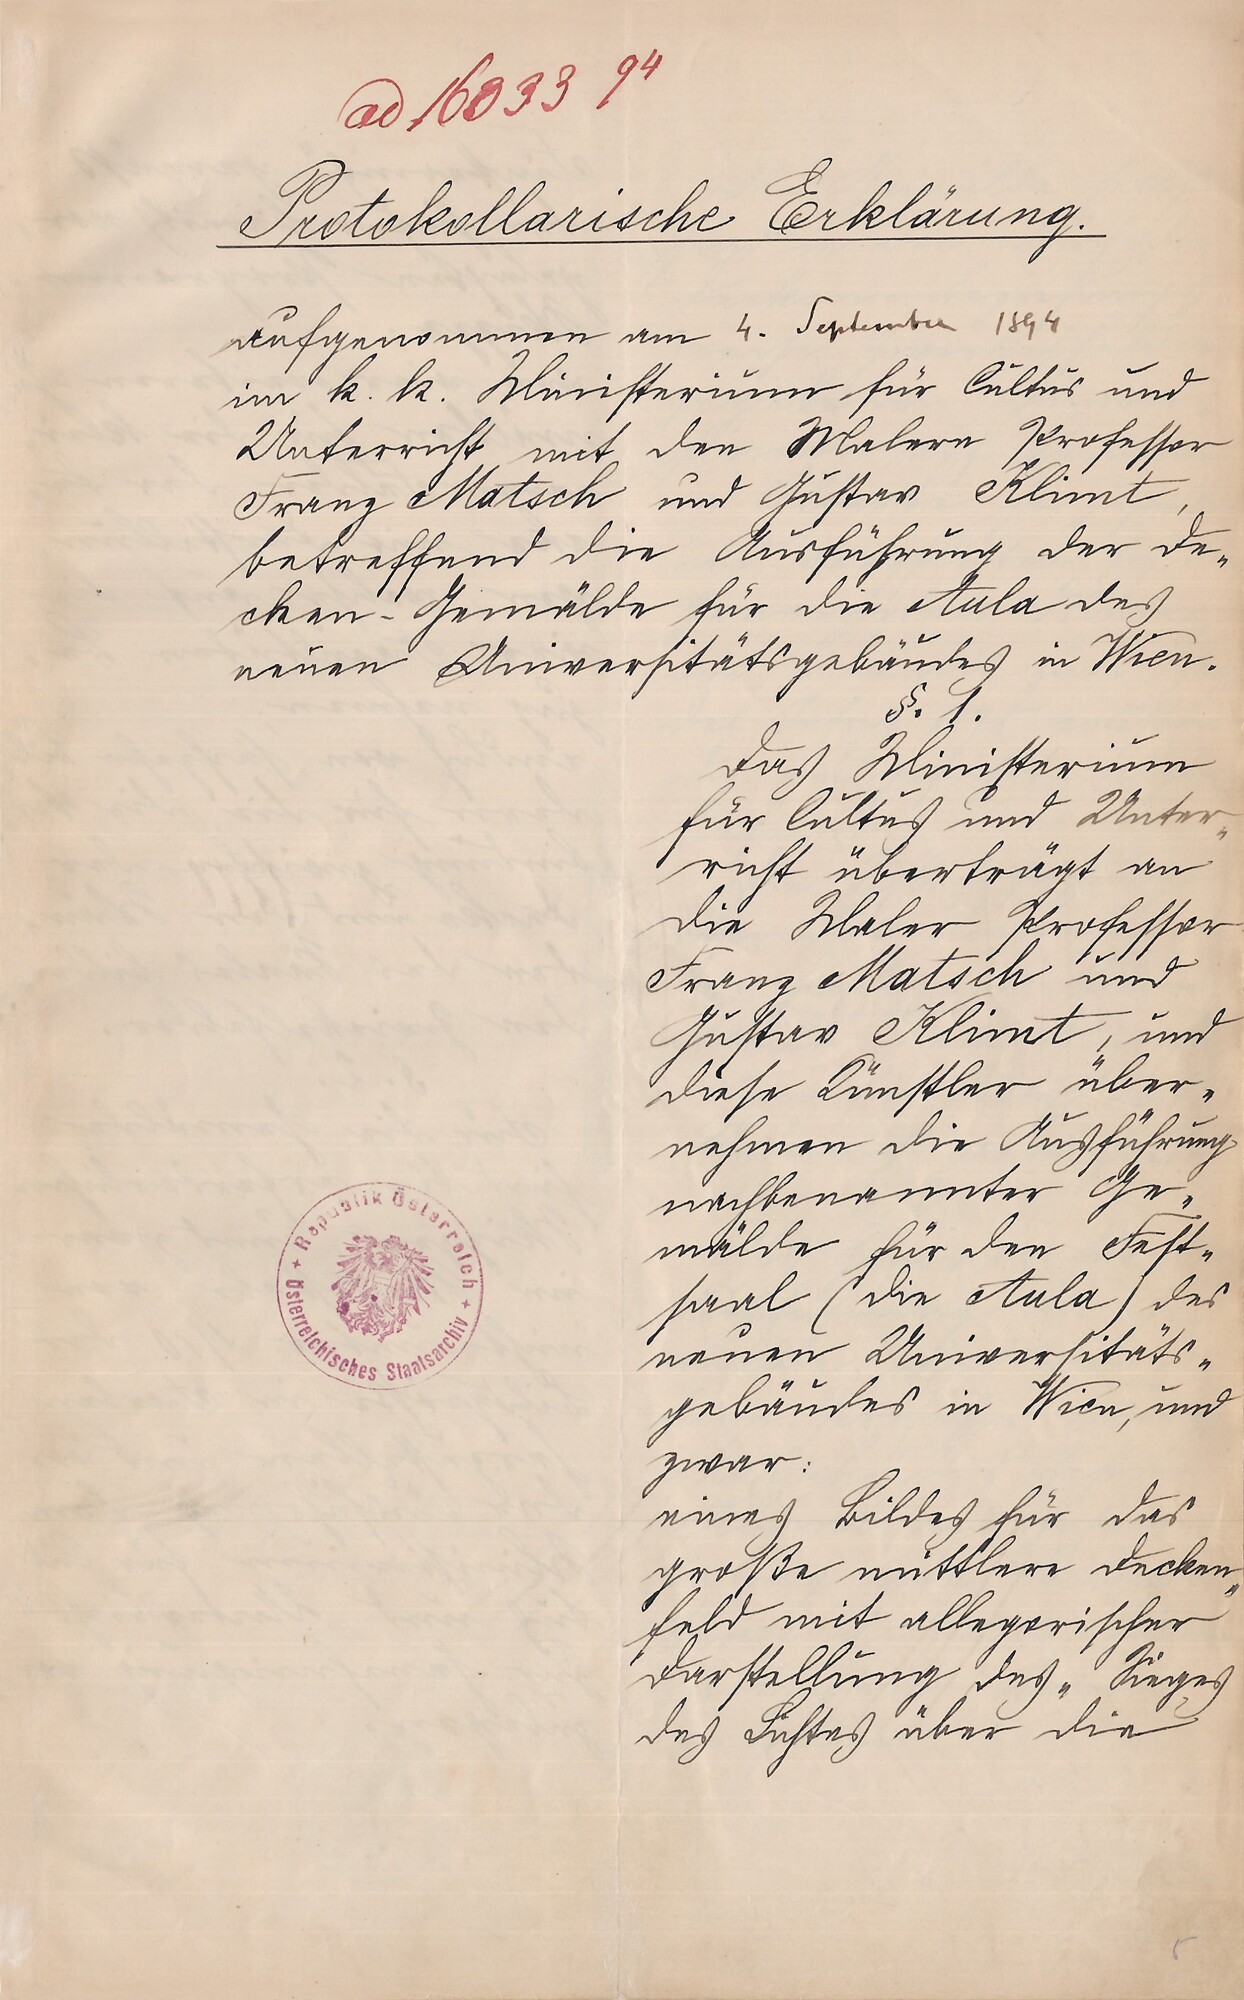 ad 16033 94
Protokollarische Erklärung.
aufgenommen am 4. September 1894
im k. k. Ministerium für Cultus und
Unterricht mit den Malern Professor
Franz Matsch und Gustav Klimt,
betreffend die Ausführung der De„
cken-Gemälde für die Aula des
neuen Universitätsgebäudes in Wien.
§. 1.
Das Ministerium
für Cultus und Unter„
richt überträgt an
die Maler Professor
Franz Matsch und
Gustav Klimt, und
diese Künstler über„
nehmen die Ausführung
nachbenannter Ge„
mälde für den Fest„
saal (die Aula) des
neuen Universitäts„
gebäudes in Wien, und
zwar:
eines Bildes für das
große mittlere Decken„
feld mit allegorischer
Darstellung des „Sieges
des Lichtes über die
Republik Österreich
Österreichisches Staatsarchiv
5